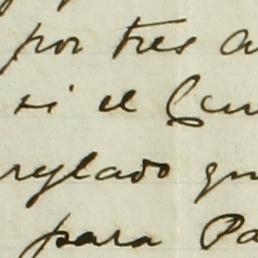 por tres a
si el Can
reglado qu
para Pa